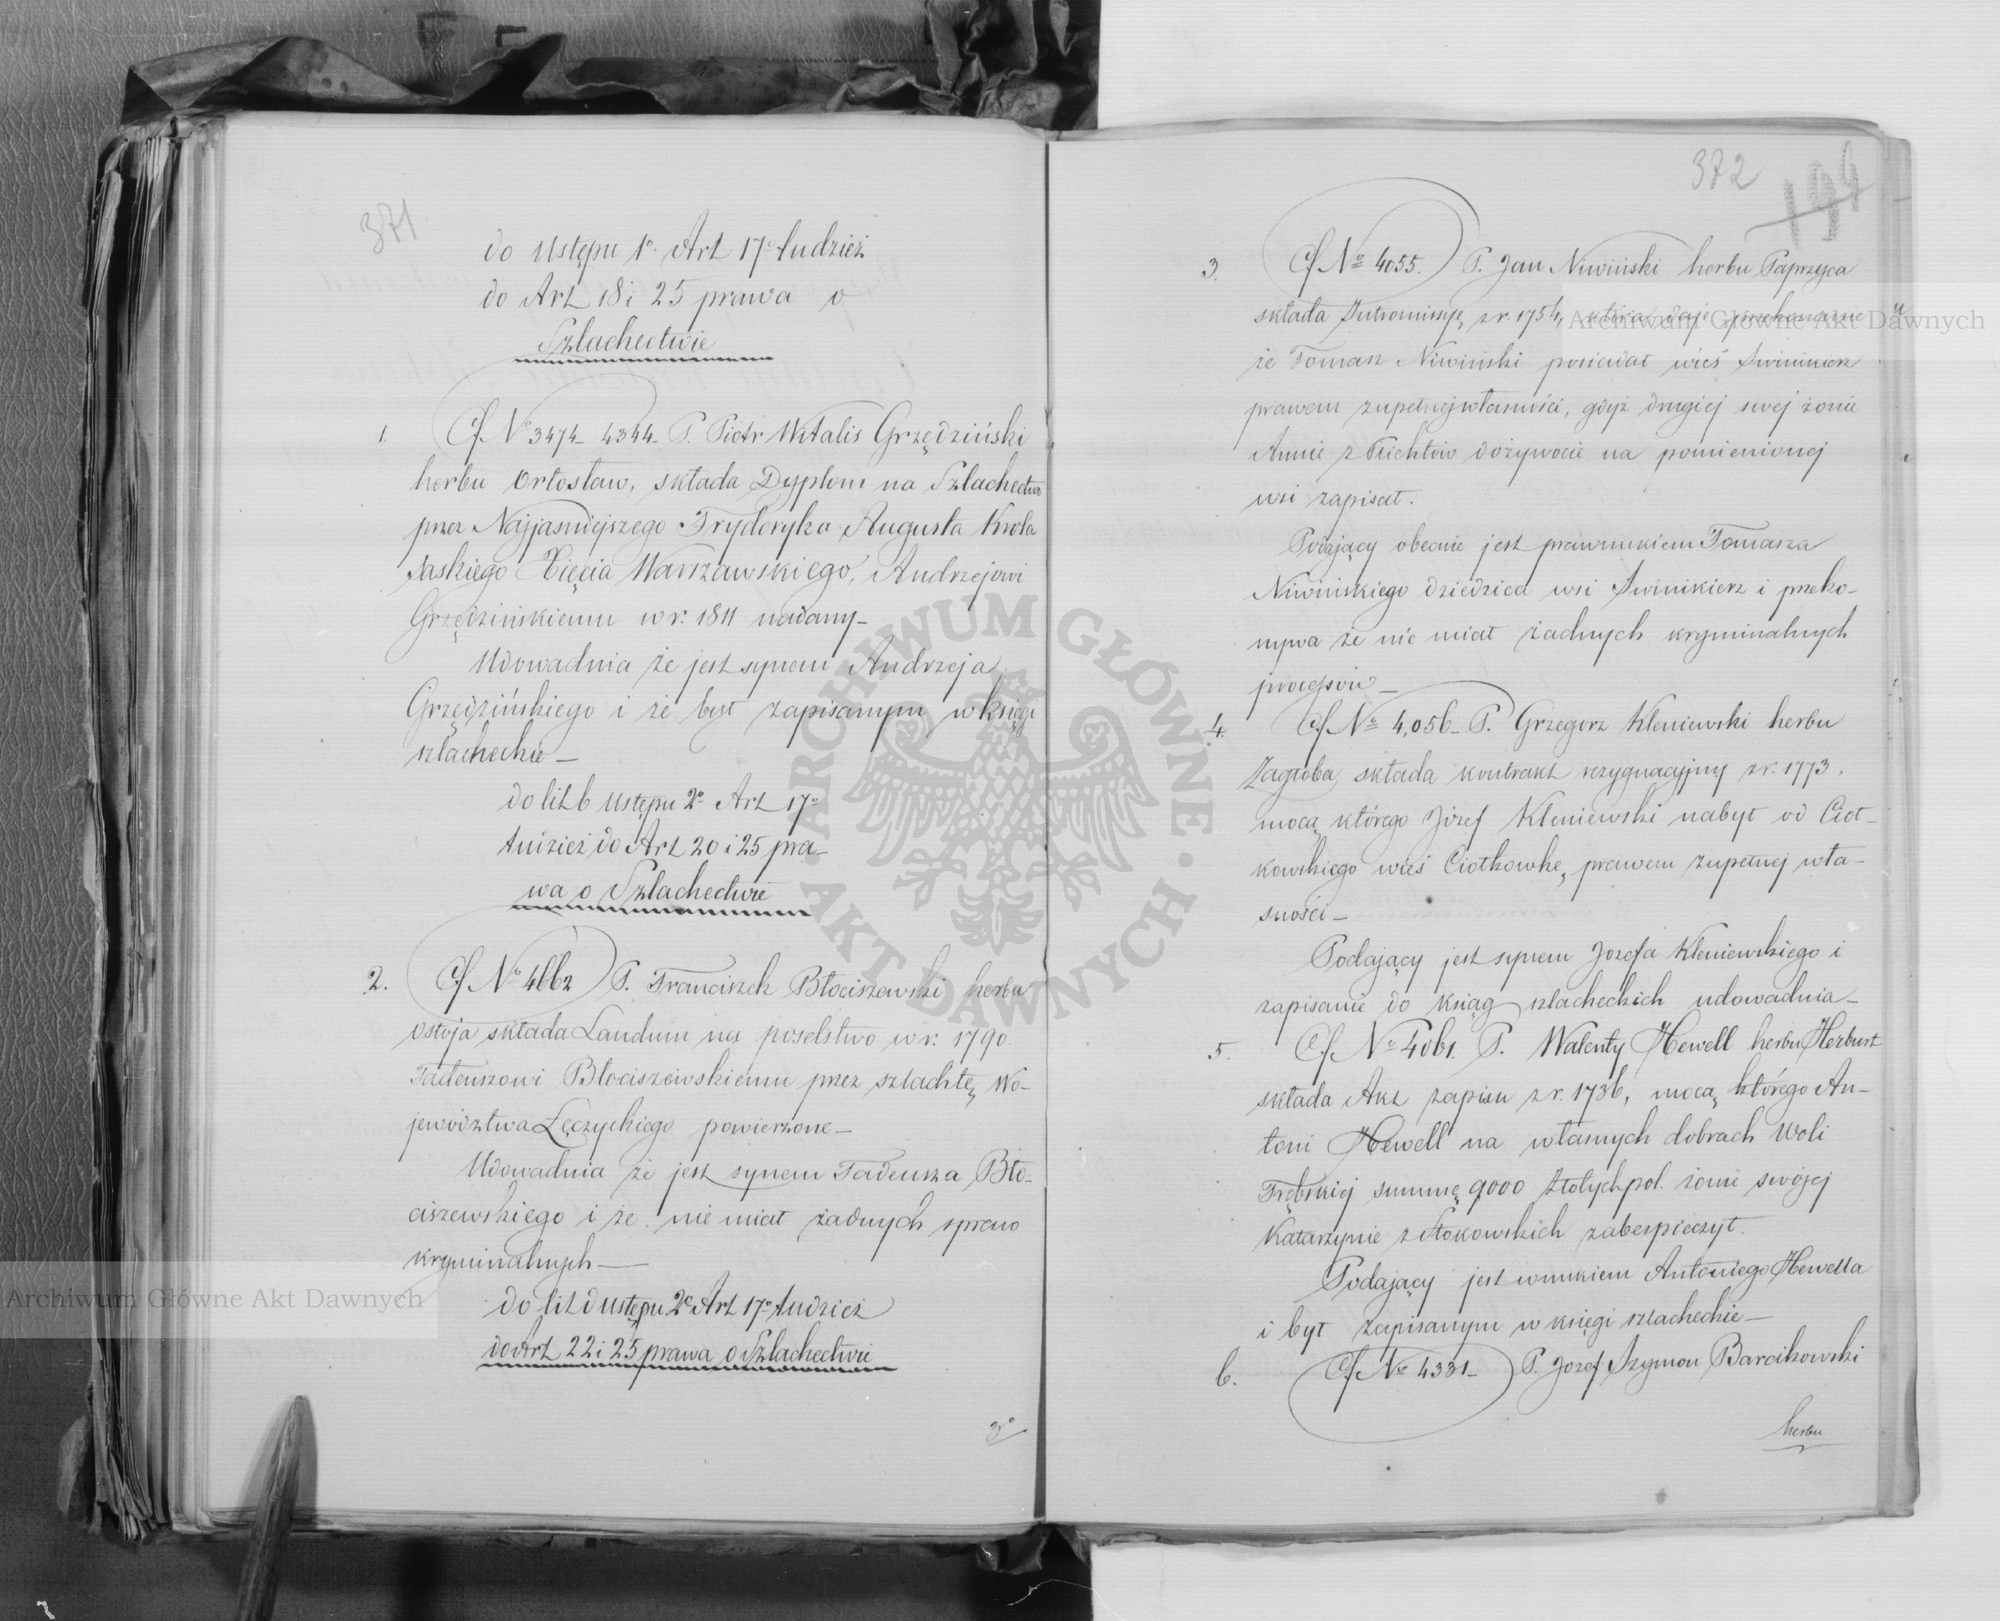 371
do Ustępu 1º Art 17º tudzież
do Art 18 i 25 prawa o
Szlachectwie
1. Cf Nº 3474 - 4344 - P. Piotr Witalis Grzędziński
herbu Ortosław, składa Dyplom na Szlachectwo
przez Najjasniejszego Fryderyka Augusta Krola
Saskiego Xięcia Warszawskiego, Andrzejowi
Grzędzińskiemu w r. 1811 nadany -
Udowadnia że jest synem Andrzeja
Grzędzińskiego i że był zapisanym w księgi
szlacheckie -
do lit b Ustępu 2º Art 17º
tudzież do Art 20 i 25 pra-
wa o Szlachectwie
2. Cf Nº 4662 P. Franciszek Błociszewski herbu
Ostoja składa Laudum na poselstwo w r. 1790
Tadeuszowi Błociszewskiemu przez szlachtę Wo-
jewództwa Łęczyckiego powierzone -
Udowadnia że jest synem Tadeusza Bło-
ciszewskiego i że nie miał żadnych spraw
kryminalnych -
do lit d Ustępu 2º Art 17º tudzież
do Art 22 i 25 prawa o Szlachectwie
3º
372
199
3. Cf Nº 4055. P. Jan Niwiński herbu Paprzyca
składa Intromissyę z r. 1754, która daje przekonanie
że Tomasz Niwiński posiadał wieś Swinikierz
prawem zupełnej własności, gdyż drugiej swej żonie
Annie z dożywocie na pomienionej
wsi zapisał.
Podający obecnie jest prawnukiem Tomasza
Niwińskiego dziedzica wsi Swinikierz i przeko-
nywa że nie miał żadnych kryminalnych
processów -
4. Cf Nº 4,056 - P. Grzegorz Kleniewski herbu
Zagłoba, składa kontrakt rezygnacyjny z r. 1773,
mocą którego Józef Kleniewski nabył od Ciot-
kowskiego wieś Ciotkowkę, prawem zupełnej wła-
sności -
Podający jest synem Jozefa Kleniewskiego i
zapisanie do ksiąg szlacheckich udowadnia -
5. Cf Nº 4061. P. Walenty Hewell herbu Herburt
składa Akt zapisu z r. 1736, mocą którego An-
toni Hewell na własnych dobrach Woli
Trębskiej summę 9000 złotych pol. żonie swójej
Katarzynie z Stokowskich zabespieczył.
Podający jest wnukiem Antoniego Hewella
i był zapisanym w księgi szlacheckie -
6. Cf Nº 4331 - P. Jozef Szymon Barcikowski
herbu
Archiwum Główne Akt Dawnych
Archiwum Główne Akt Dawnych
ARCHIWUM GŁÓWNE AKT DAWNYCH